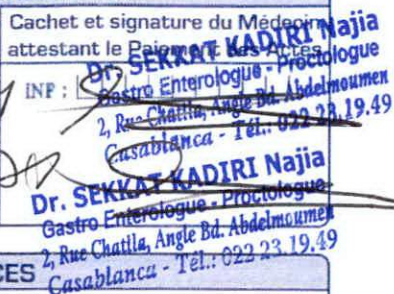 Cachet et signature du Médecin
attestant le Paiement des Actes
INP :
Dr. SEKKAT KADIRI Najia
Gastro Enterologue - Proctologue
2, Rue Chatila, Angle Bd. Abdelmoumen
Casablanca - Tél.: 022 23.19.49
Dr. SEKKAT KADIRI Najia
Gastro Enterologue - Proctologue
2, Rue Chatila, Angle Bd. Abdelmoumen
Casablanca - Tél.: 022 23.19.49
CES